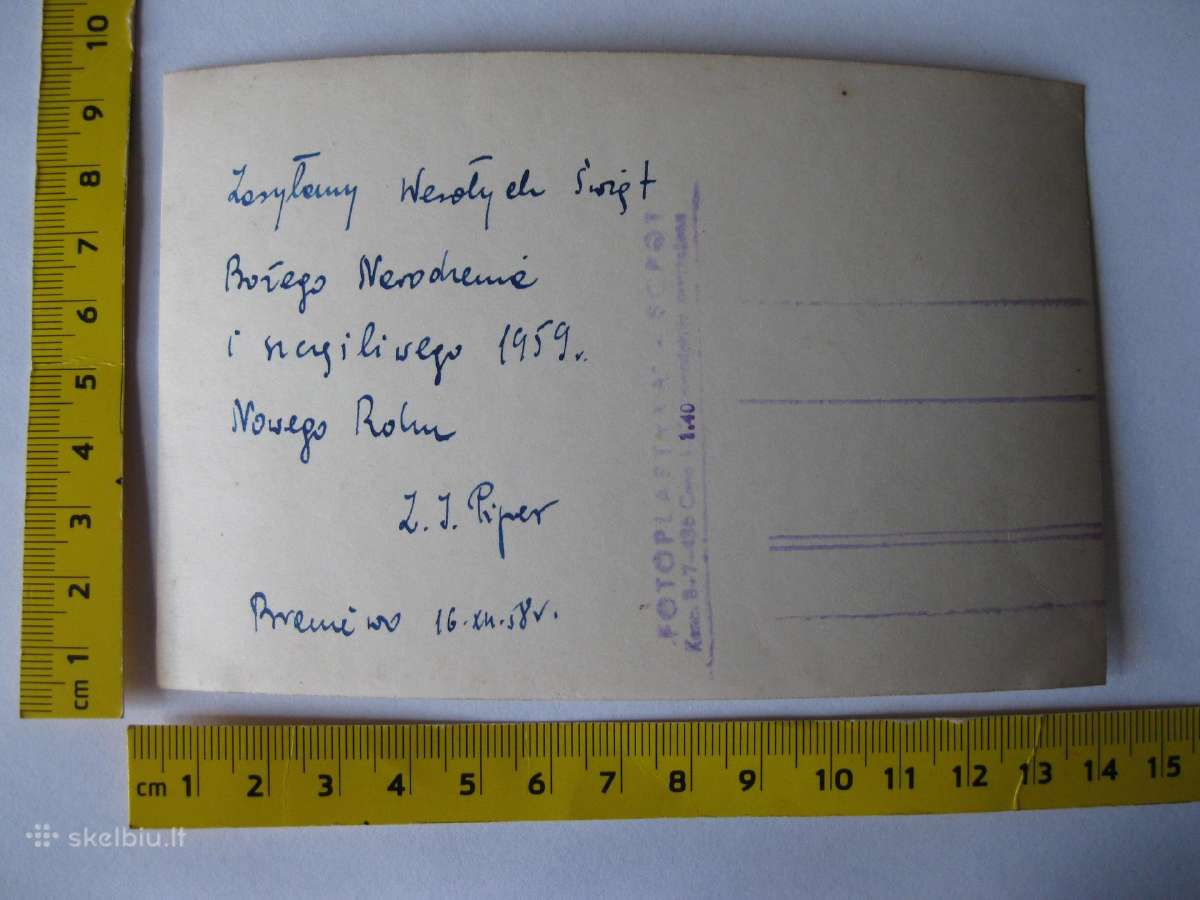 Zasyłamy Wesołych Świąt
Bożego Narodzenia
i szczęśliwego 1959r.
Nowego Roku
Z. J. Piper
Braniewo 16.XII.58r.
FOTOPLASTYKA - SOPOT
1.40
cm 1 2 3 4 5 6 7 8 9 10
cm 1 2 3 4 5 6 7 8 9 10 11 12 13 14 15
skelbiu.lt